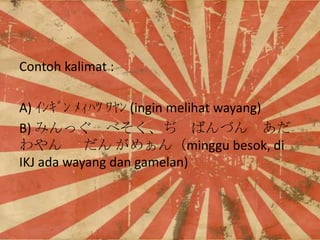 Contoh kalimat :
A) ｲﾝｷﾞﾝ ﾒｨﾊﾂ ﾜﾔﾝ (ingin melihat wayang)
B) みんっぐ　べそく、ぢ　ばんづん　あだ
わやん　だん がめぁん（minggu besok, di
IKJ ada wayang dan gamelan)